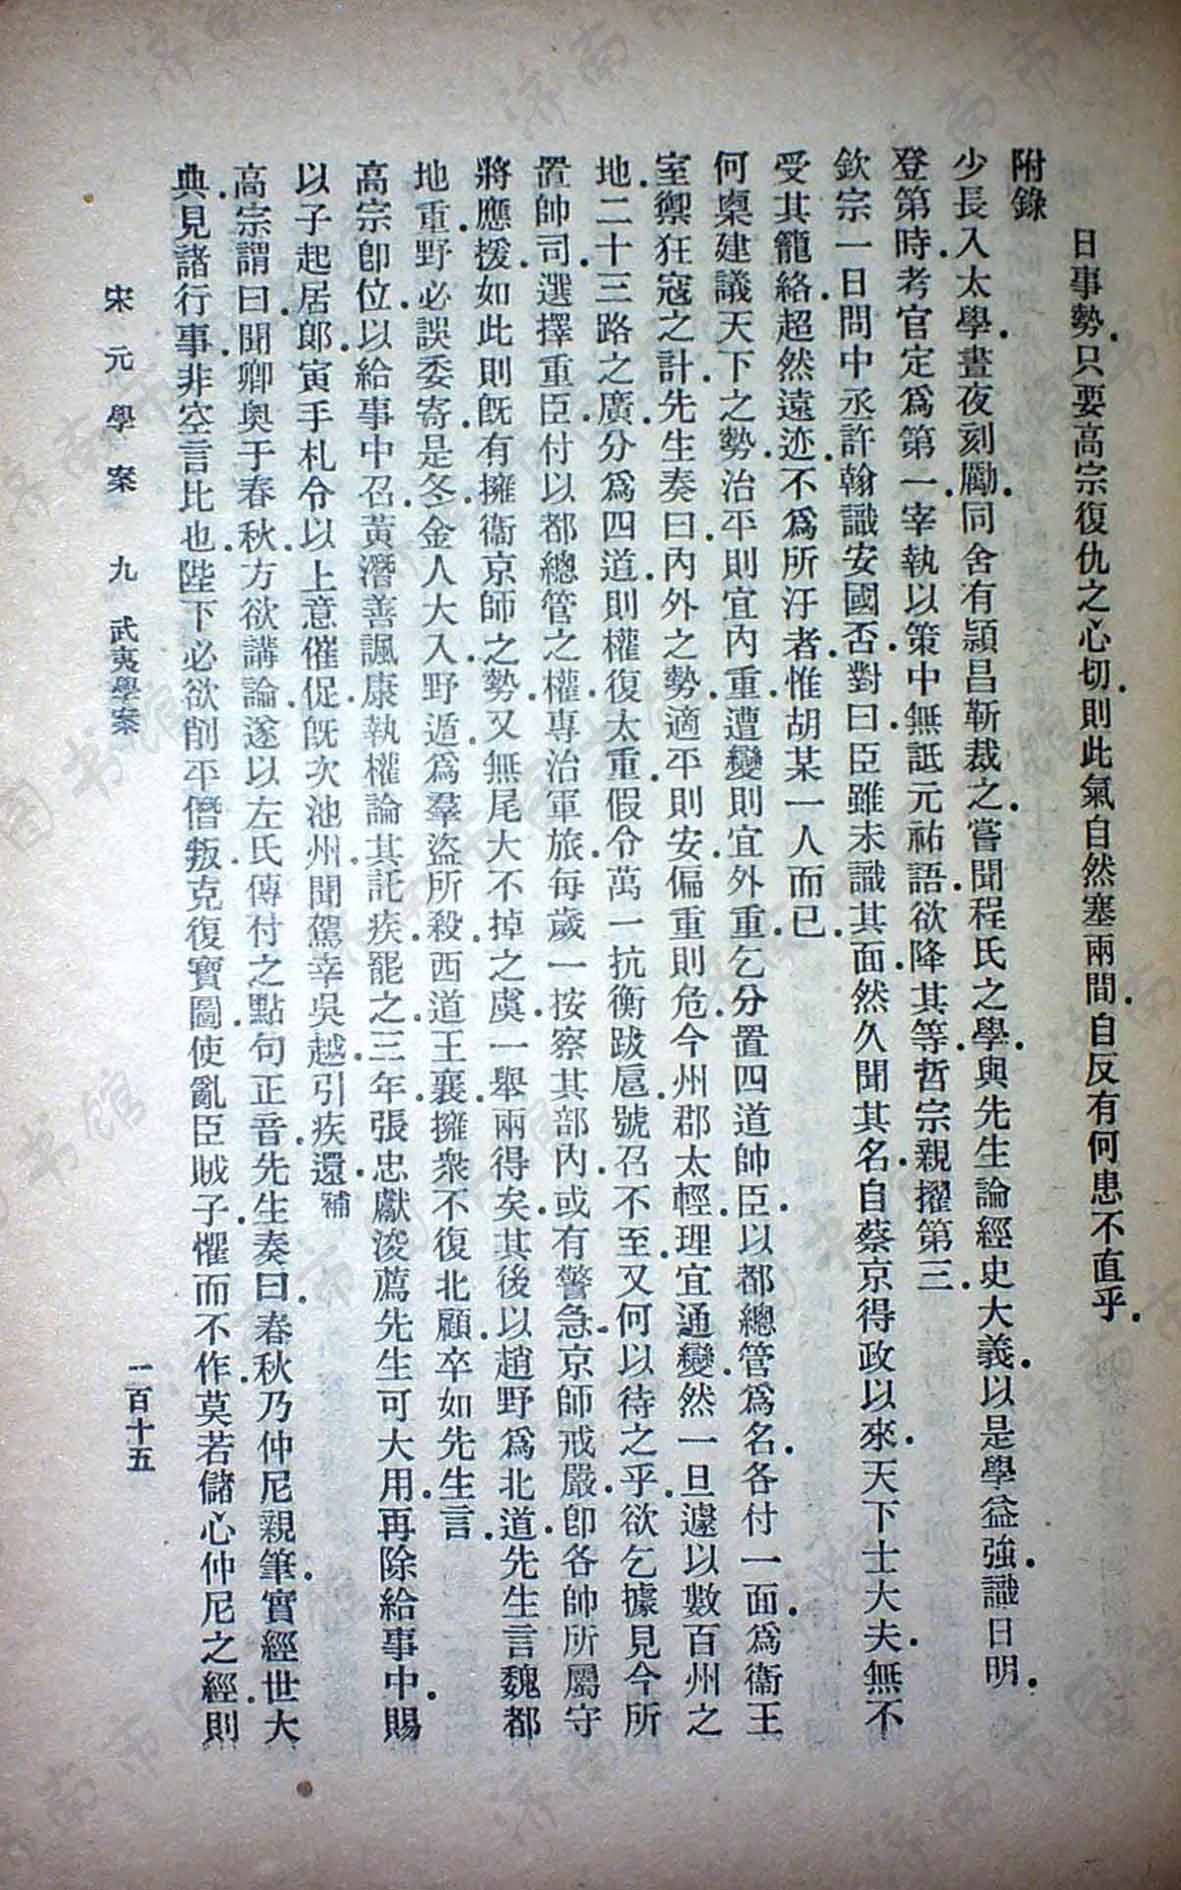 日事勢.只要高宗復仇之心切.則此氣自然塞兩間.自反有何患不直乎.
附錄
少長入太學.晝夜刻勵.同舍有潁昌靳裁之.嘗聞程氏之學.與先生論經史大義.以是學益強.識日明.
登第時.考官定爲第一.宰執以策中無詆元祐語.欲降其等.哲宗親擢第三.
欽宗一日問中丞許翰識安國否.對曰.臣雖未識其面.然久聞其名.自蔡京得政以來.天下士大夫.無不
受其籠絡.超然遠迹.不爲所汙者.惟胡某一人而已.
何㮚建議天下之勢.治平則宜內重.遭變則宜外重.乞分置四道帥臣.以都總管爲名.各付一面.爲衞王
室禦狂寇之計.先生奏曰.內外之勢.適平則安.偏重則危.今州郡太輕.理宜通變.然一旦遽以數百州之
地.二十三路之廣.分爲四道.則權復太重.假令萬一抗衡跋扈.號召不至.又何以待之乎.欲乞據見今所
置帥司.選擇重臣.付以都總管之權.專治軍旅.每歲一按察其部內.或有警急.京師戒嚴.卽各帥所屬守
將應援.如此則旣有擁衞京師之勢.又無尾大不掉之虞.一舉兩得矣.其後以趙野爲北道.先生言魏都
地重.野必誤委寄.是冬.金人大入.野遁.爲羣盜所殺.西道王襄擁衆不復北顧.卒如先生言.
高宗卽位.以給事中召.黃潛善諷康執權論其託疾.罷之.三年.張忠獻浚薦先生可大用.再除給事中.賜
以子起居郎.寅手札.令以上意催促.旣次池州.聞駕幸吳越.引疾還.補
高宗謂曰.聞卿奧于春秋.方欲講論.遂以左氏傳付之點句正音.先生奏曰.春秋乃仲尼親筆.實經世大
典.見諸行事.非空言比也.陛下必欲削平僭叛.克復寶圖.使亂臣賊子.懼而不作.莫若儲心仲尼之經.則
宋元學案 九 武夷學案 二百十五